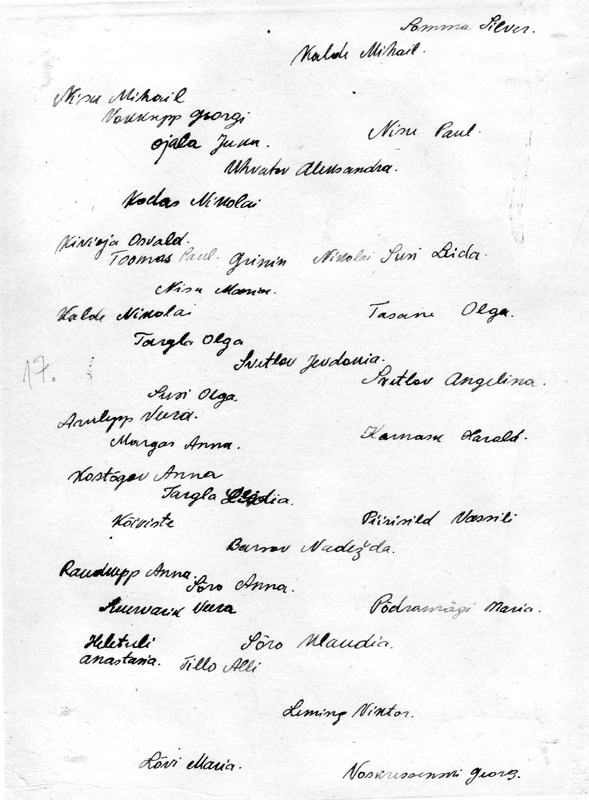 Somma Silver.
Kalde Mihail.
Nisu Mihail
Georgi
Ojala Juta.
Nisu Paul.
Uhvatov Aleksandra.
Kodas Nikolai
Kivioja Osvald.
Toomas Paul. Grinin Nikolai Susi Leida.
Nisu Maria.
Kalde Nikolai
Tasane Olga.
Targla Olga
Svetlov Jevdokia.
Svetlov Angelina.
17.
Susi Olga
Arulepp Veera.
Margas Anna.
Karnasu Harald.
Kostõgov Anna
Targla Lidia.
Kõiviste
Piirisild Vassili
Barsov Nadežda.
Raudlepp Anna.
Sõro Anna.
Veera
Podramägi Maria.
Heletuli
Anastasia.
Sõro Klaudia.
Tillo Alli
Leming Viktor.
Lõvi Maria.
Voskressenski Georg.